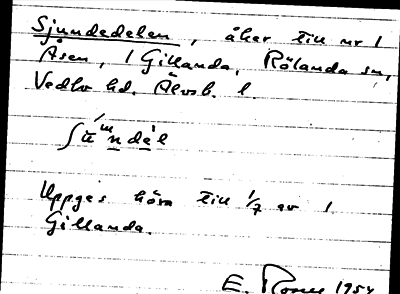 Sjundedelen, åker till nr 1
Åsen, 1 Gillanda, Rölanda sn,
Vedbo hd. Älvsb. l.
Uppges höra till 1/7 av 1
Gillanda.
E. Rosell 1954